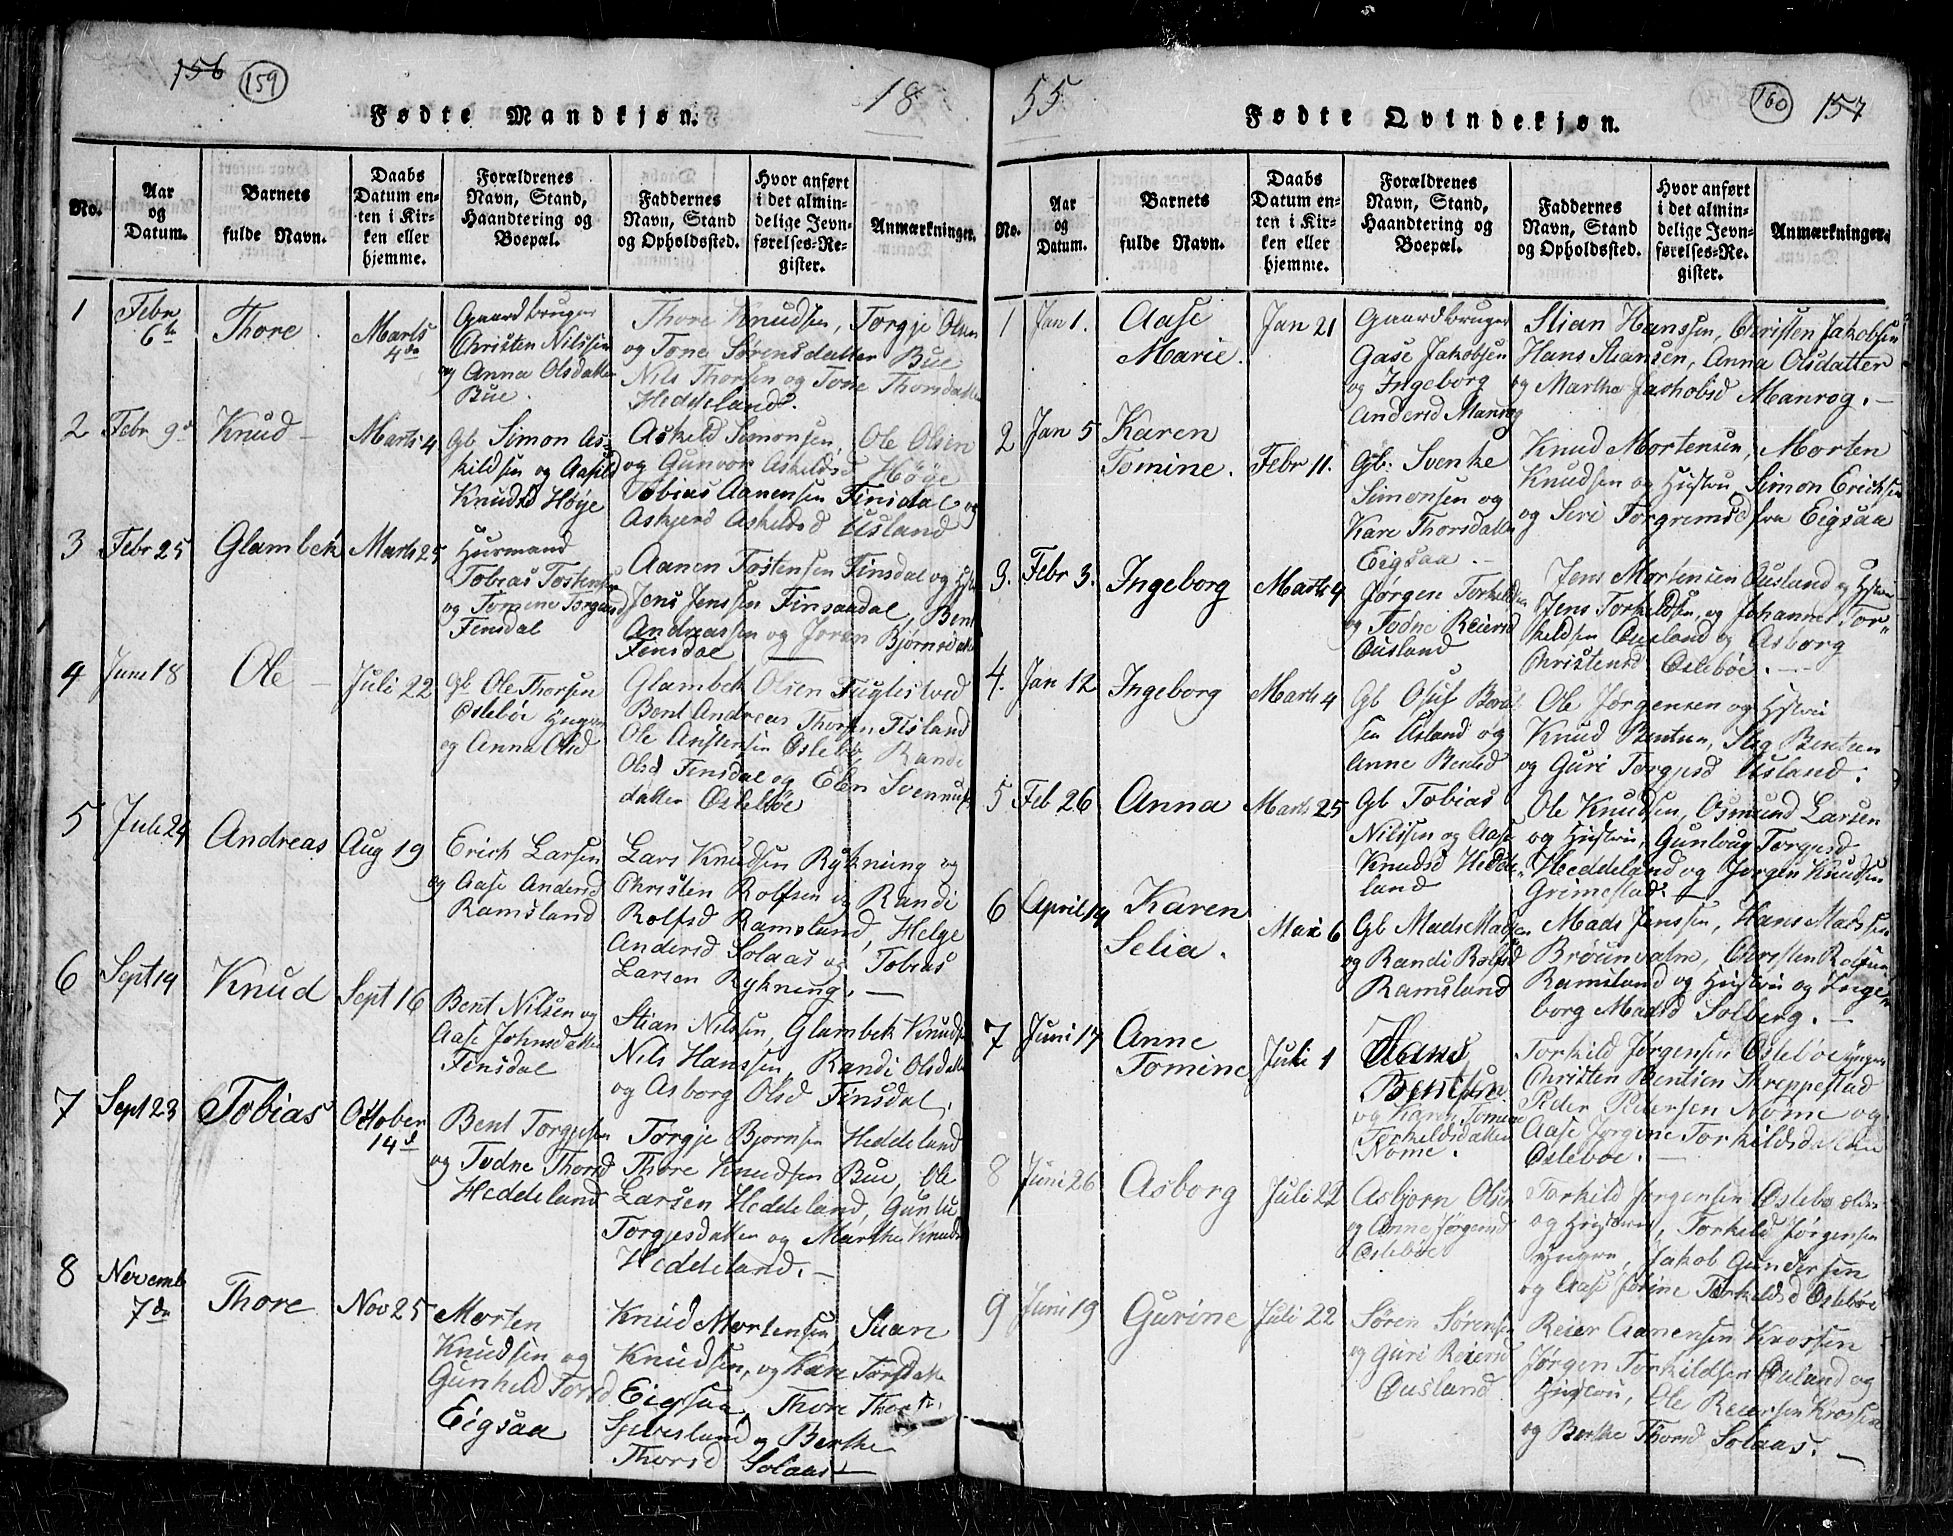 156 159
18
Fødte Mandkjøn.
No.
Aar
og
Datum.
Barnets
fulde Navn.
Daabs
Datum en-
ten i Kir-
ken eller
hjemme.
Forældrenes
Navn, Stand,
Haandtering og
Boepæl.
Faddernes
Navn, Stand
og Opholdssted.
Hvor anført
i det almin-
delige Jevn-
førelses-Re-
gister.
Anmærkninger.
1
Febr
6te
Thore
Marts
4de
Gaardbruger
Christen Nilssen
og Anna Olsdatter
Bue.
Thore Knudsen, Torgje Olsen
og Tone Sørensdatter Bue
Nils Thorsen og Tone Thorsdatter
Heddeland.
2
Febr 9de
Knud
Marts 4
Gb Simon As-
kildsen og Aasild
Knudsd Høye
Askeld Simonsen, Ole Olsen
og Gunvor Askeldsd Høye
Tobias Aanensen Finsdal og
Askjerd Askeldsd Usland
3
Febr 25
Glambek
Marts 25
Huusmand
Tobias Tostensen
og Tomine Torgiusd
Finsdal
Aanen Tostensen Finsdal og Hst
Jens Jenssen Finsaadal, Bent
Andreassen og Joren Bjørnsdatter
Finsdal
4
Juni 18
Ole
Juli 22
Gb Ole Thorsen
Oslebøe yngre
og Anna Olsd
Glambek Olsen Fuglestved
Bent Andreas Thorsen Tisland
Ole Anstensen Oslebø, Randi
Olsd Finsdal og Elen Svennungs
datter Oslebøe
5
Juli 24
Andreas
Aug 19
Erich Larsen
og Aase Andersd
Ramsland
Lars Knudsen Rykning og
Christen Rolfsen og Randi
Rolfsd Ramsland, Helge
Andersd Solaas og Tobias
Larsen Rykning.
6
Sept 19
Knud
Sept 16
Bent Nilsen og
Aase Johnsdatter
Finsdal
Stian Nilssen, Glambek Knudsen
Nils Hanssen, Randi Olsdatter
og Asborg Olsd Finsdal.
7
Sept 23
Tobias
Octtober
14d
Bent Torgjusen
og Todne Thorsd
Heddeland
Torgje Bjornsen Heddeland
Thore Knudsen Bue, Ole
Larsen Heddeland, Gunlu
Torgjesdatter og Marthe Knudsd
Heddeland.
8
Novemb
7de
Thore
Nov 25
Morten
Knudsen og
Gunhild Torsd
Eigsaa
Knud Mortensen, Suan
Knudsen, og Kare Torsdatter
Eigsaa, Thore Thorsn,
Sjevesland og Berthe
Thorsd Solaas
55
160 157
Fødte Qvindekjøn.
No.
Aar
og
Datum.
Barnets
fulde Navn.
Daabs
Datum en-
ten i Kir-
ken eller
hjemme.
Forældrenes
Navn, Stand,
Haandtering og
Boepæl.
Faddernes
Navn, Stand
og Opholdssted.
Hvor anført
i det almin-
delige Jevn-
førelses-Re-
gister.
Anmærkninger.
1
Jan 1.
Aase
Marie.
Jan 21
Gaardbruger
Gase Jakobsen
og Ingeborg
Andersd Manrog
Stian Hanssen, Christen Jakobsen
Hans Stiansen, Anna Olsdatter
og Marthe Jachobsd Manrog.
2
Jan 5
Karen
Tomine.
Febr 11.
Gb: Svenke
Simonsen og
Kare Thorsdatter
Eigsaa
Knud Mortensen, Morten
Knudsen og Hustru, Simon Erichsen
og Seri Torgrimsd fra Eigsaa
3.
Febr 3.
Ingeborg
Marts 4
Jørgen Torkildsen
og Todne Reiersd
Ousland
Jens Mortensen Ousland og Hustru
Jens Torkeldsen, og Johannes Tor-
keldsen Ousland og Asborg
Christensd Oslebøe.
4.
Jan 12
Ingeborg
Marts 4
Gb Osuf Bend-
sen Usland og
Anne Bentsd
Ole Jørgensen og Hstru
Knud Bentsen, Stig Bentsen
og Guri Torgjusd Usland.
5
Feb 26
Anna
Marts 25
Gb Tobias
Nilssen og Aase
Knudsd Hedde-
land
Ole Knudsen, Osmund Larsen
og Hustru, Gunloug Torgusd
Heddeland og Jorgen Knudsen
Grimestad.
6
April 19
Karen
Selia.
Mai 6
Gb Mads Madsen
og Randi Rolfsd
Ramsland
Mads Jenssen, Hans Madssen
Brøunvalm, Christen Rolfsen
Ramsland og Hustru og Inge-
borg Madsd Solberg.
7
Juni 17
Anne
Tomine
Juli 1
Hans
Bentsen
og Karen Tomine
Torkeldsdatter
Nome.
Torkild Jørgensen Oslebøe yngre
Christen Bentsen Skreppestad
Peder Pedersen Nome og
Aase Jørgine Torkildsdatter
Oslebøe.
8
Juni 26
Asborg
Juli 22
Asbjorn Olsen
og Anne Jørgensd
Oslebøe
Torkild Jørgensen Oslebø ældre
og Hustru, Torkild Jørgensen
yngre, Jakob Gundersen
og Aase Jorine Torkeldsd Oslebøe
9
Juni 19
Gurine
Juli 22
Søren Sørensen
og Guri Reiersd
Ousland
Reier Aanensen Krossen
Jørgen Torkildsen Ousland og
Hustru, Ole Reiersen Krossen
og Berthe Thorsd Solaas.